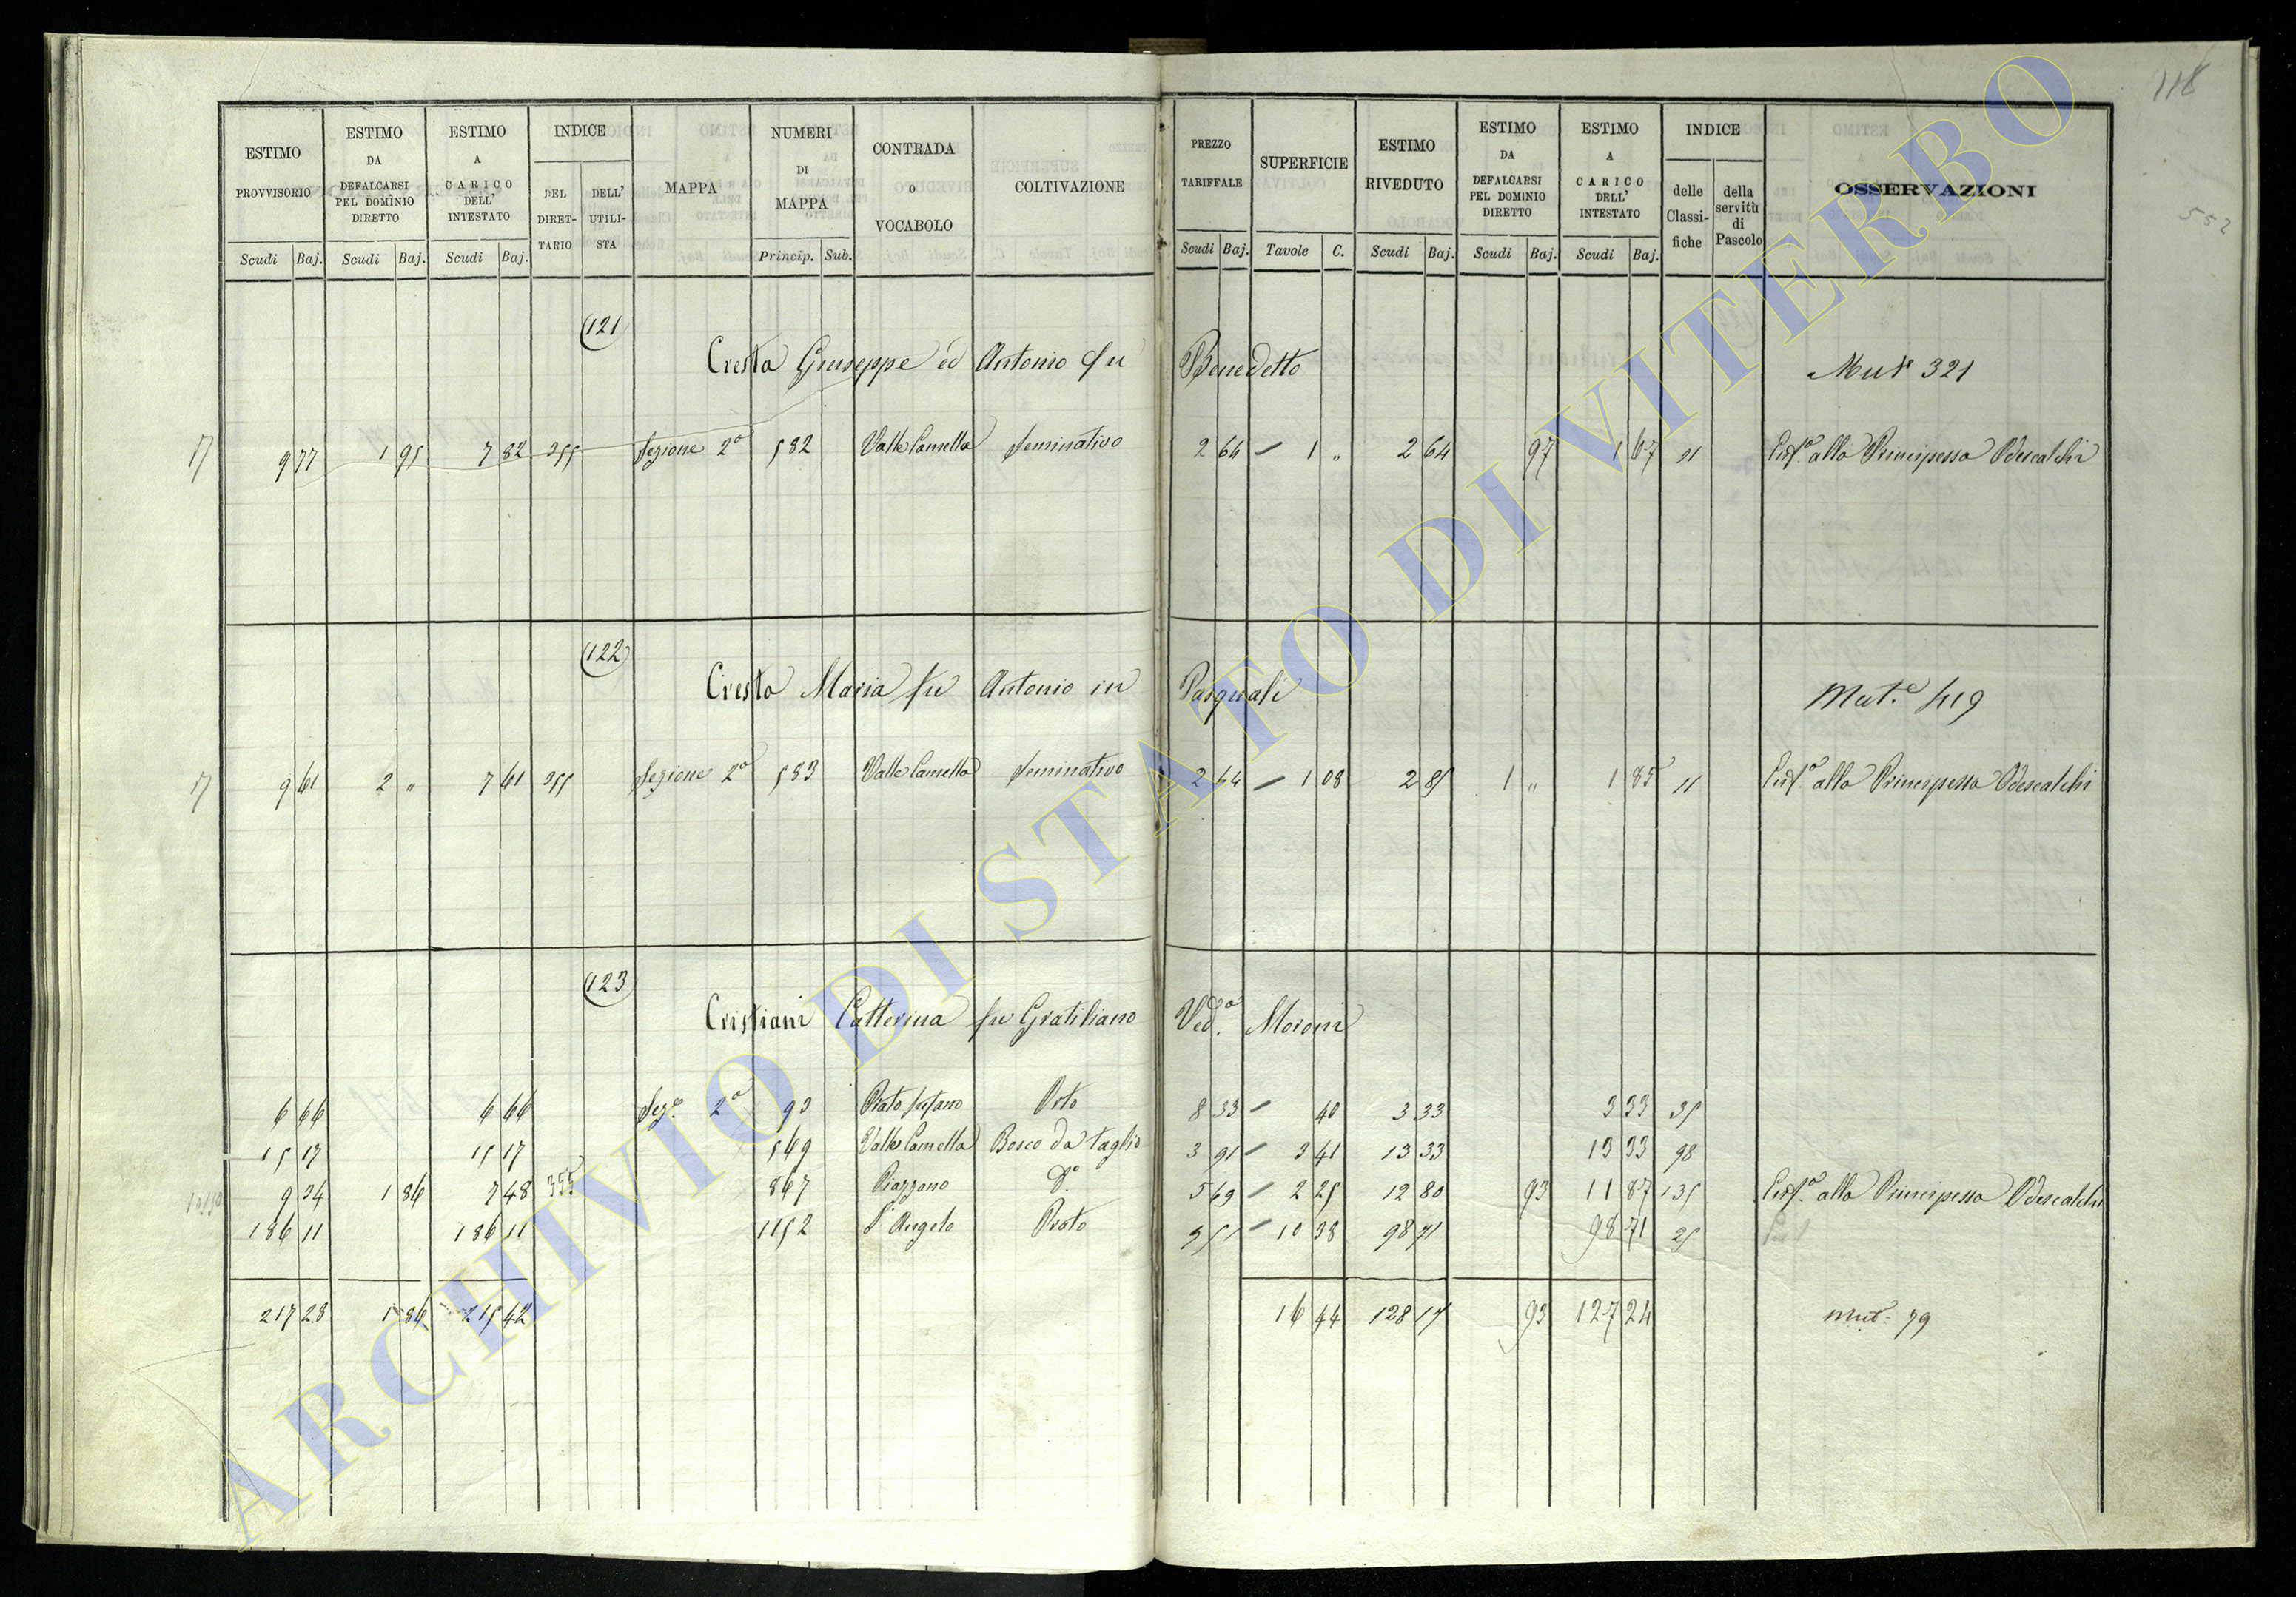 118
552
ESTIMO PROVVISORIO Scudi Baj.
ESTIMO DA DEFALCARSI PEL DOMINIO DIRETTO Scudi Baj.
ESTIMO A CARICO DELL' INTESTATO Scudi Baj.
INDICE DEL DIRET- TARIO DELL' UTILI- STA
MAPPA
NUMERI DI MAPPA Princip. Sub.
CONTRADA O VOCABOLO
COLTIVAZIONE
PREZZO TARIFFALE Scudi Baj.
SUPERFICIE Tavole C.
ESTIMO RIVEDUTO Scudi Baj.
ESTIMO DA DEFALCARSI PEL DOMINIO DIRETTO Scudi Baj.
ESTIMO A CARICO DELL' INTESTATO Scudi Baj.
INDICE delle Classi- fiche della servitù di Pascolo
OSSERVAZIONI
121
Cresta Giuseppe ed Antonio fu Benedetto Mut.e 321
9 77 1 95 7 82 355 Sezione 2a 582 Valle Camella Seminativo 2 64 1 „ 2 64 97 1 67 11 Enf.a alla Principessa Odescalchi
122
Cresta Maria fu Antonio in Pasquali Mut.e 419
9 61 2 „ 7 61 355 Sezione 2a 583 Valle Camella Seminativo 2 64 1 08 2 85 1 „ 1 85 11 Enf.a alla Principessa Odescalchi
123
Cristiani Catterina fu Gratiliano Ved.a Moroni
6 66 6 66 Sez.e 2a 93 Prato Orto 8 33 40 3 33 3 33 35
15 17 15 17 569 Valle Camella Bosco da taglio 3 91 3 41 13 33 13 33 98
9 34 1 86 7 48 355 867 Piazzano D.o 5 69 2 25 12 80 93 11 87 135 Enf.a alla Principessa Odescalchi
186 11 186 11 1152 S. Angelo Prato 9 51 10 38 98 71 98 71 25
217 28 1 86 215 42 16 44 128 17 93 127 24 Mut.e 79
ARCHIVIO DI STATO DI VITERBO